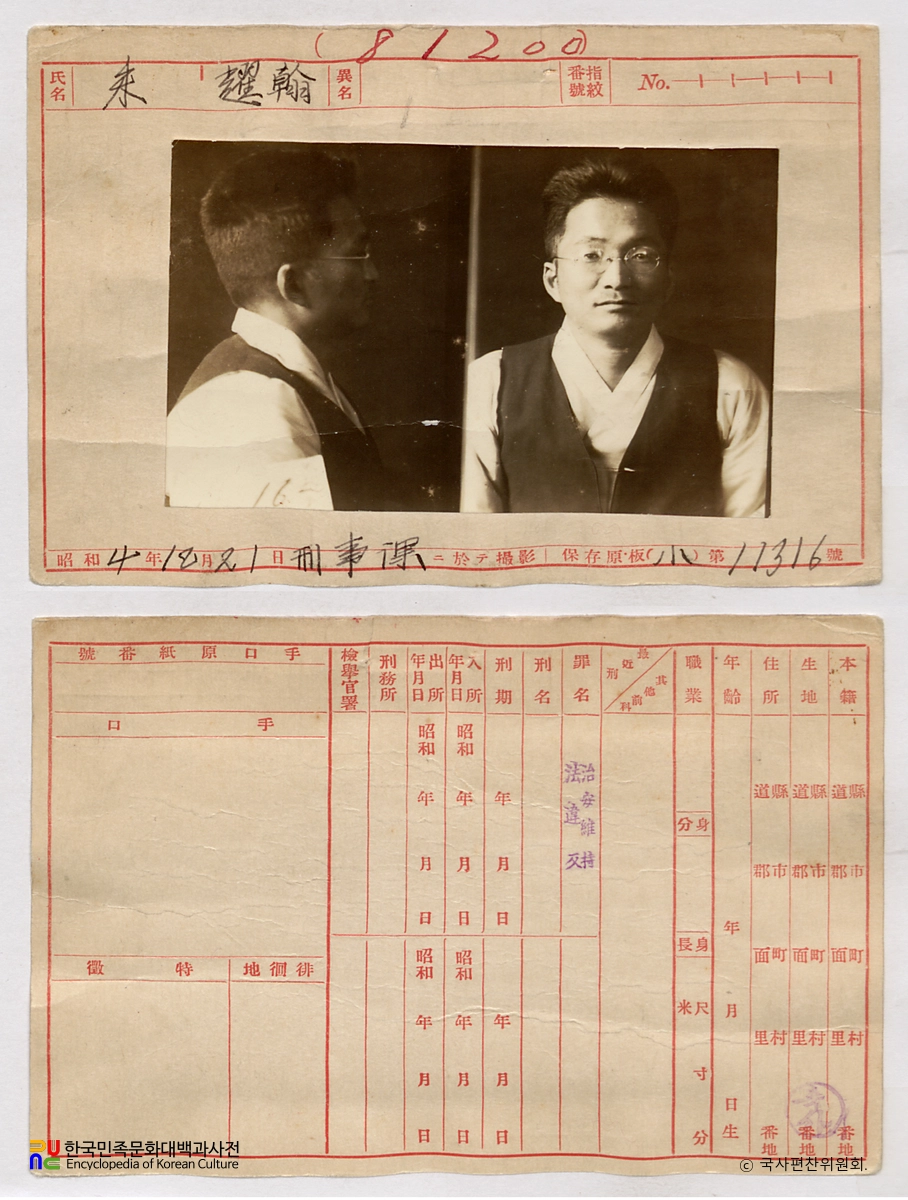 (81200)
氏名 朱 耀翰 異名 指紋番號 No.
16
昭和4年12月21日刑事課ニ於テ撮影 保存原板(小)第11316號
本籍 道縣 郡市 面町 里村 番地
生地 道縣 郡市 面町 里村 番地
住所 道縣 郡市 面町 里村 番地
年齡 年 月 日生
職業
身分
身長 尺 米 寸 分
最近刑
其他前科
罪名 治安維持法違反
刑名
刑期 年 月 日
年 月 日
入所年月日 昭和 年 月 日
昭和 年 月 日
出所年月日 昭和 年 月 日
昭和 年 月 日
刑務所
檢擧官署
手口原紙番號
手口
徘徊地
特徵
한국민족문화대백과사전
Encyclopedia of Korean Culture
© 국사편찬위원회.